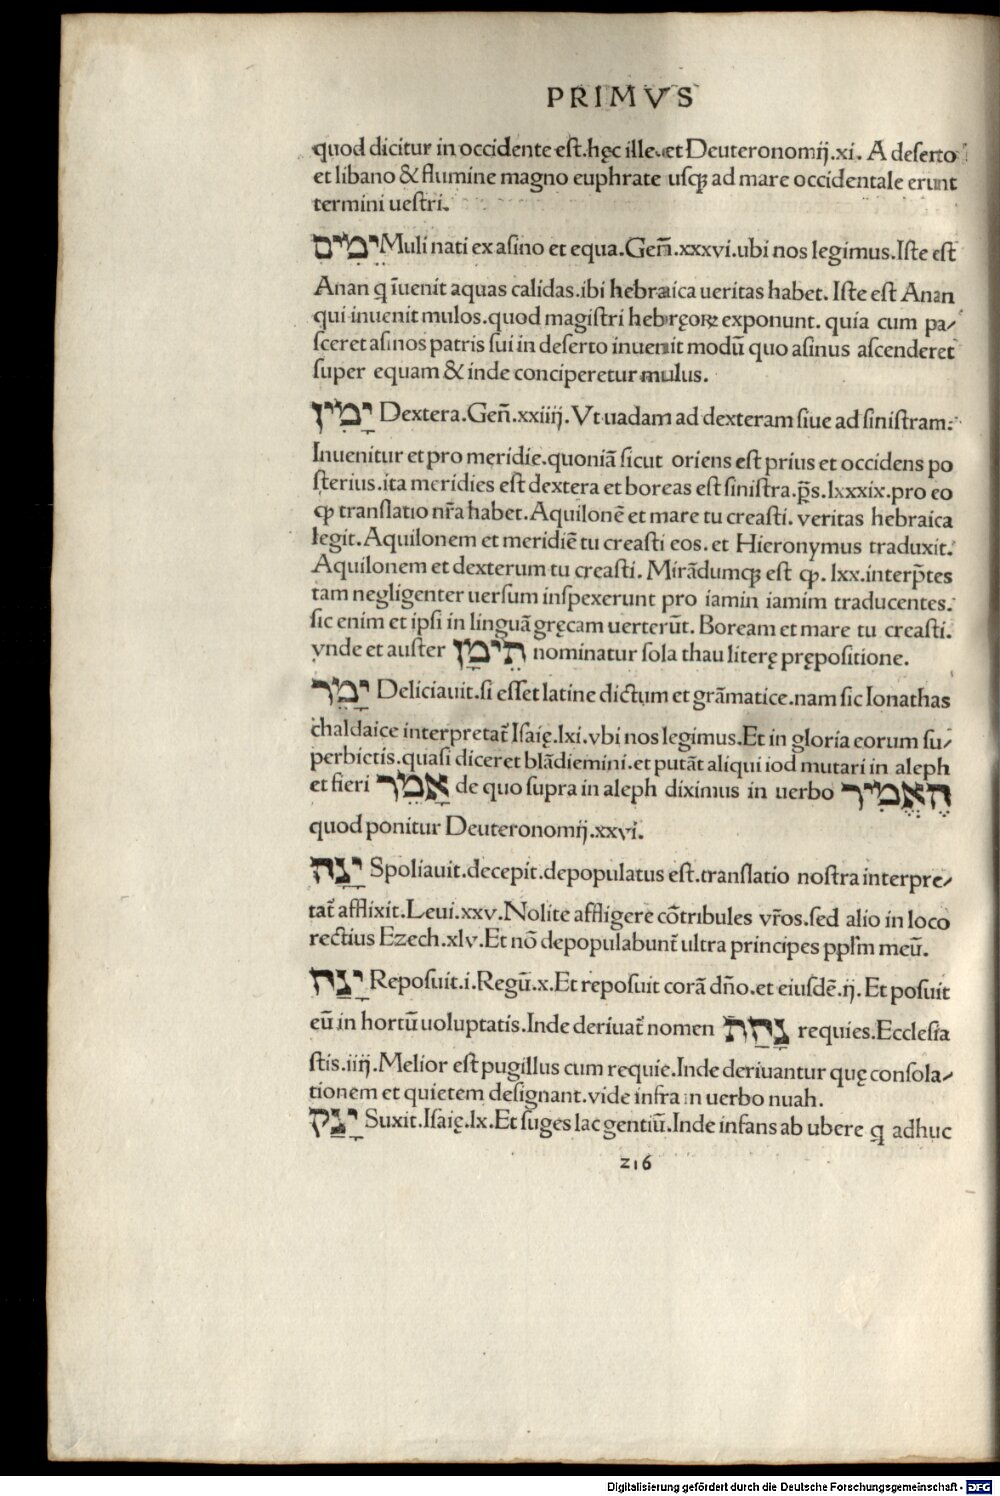 PRIMVS
quod dicitur in occidente est.hęc ille.et Deuteronomij.xi. A deserto
et libano & flumine magno euphrate usq̃ ad mare occidentale erunt
termini uestri.
יֵמִים Muli nati ex asino et equa.Geñ.xxxvi.ubi nos legimus.Iste est
Anan q ĩuenit aquas calidas.ibi hebraica ueritas habet. Iste est Anan
qui inuenit mulos.quod magistri hebręoꝝ exponunt. quia cum pa⸗
sceret asinos patris sui in deserto inuenit modũ quo asinus ascenderet
super equam & inde conciperetur mulus.
יָמִין Dextera.Geñ.xxiiij. Vt uadam ad dexteram siue ad sinistram.
Inuenitur et pro meridie.quoniã sicut oriens est prius et occidens po
sterius.ita meridies est dextera et boreas est sinistra.p̃s.lxxxix.pro eo
ꝙ translatio nr̃a habet.Aquilonẽ et mare tu creasti. veritas hebraica
legit.Aquilonem et meridiẽ tu creasti eos. et Hieronymus traduxit.
Aquilonem et dexterum tu creasti. Mirãdumq̃ est ꝙ. lxx.interp̃tes
tam negligenter uersum inspexerunt pro iamin iamim traducentes.
sic enim et ipsi in linguã gręcam uerterũt. Boream et mare tu creasti.
vnde et auster תֵימָן nominatur sola thau literę prępositione.
יָמֵר Deliciauit.si esset latine dictum et grãmatice.nam sic Ionathas
chaldaice interpretat̃ Isaię.lxi.vbi nos legimus.Et in gloria eorum su⸗
perbietis.quasi diceret blãdiemini.et putãt aliqui iod mutari in aleph
et fieri אָמֵר de quo supra in aleph diximus in uerbo הֶאֱמִיר
quod ponitur Deuteronomij.xxvi.
יָנָה Spoliauit.decepit.depopulatus est.translatio nostra interpre⸗
tat̃ afflixit.Leui.xxv.Nolite affligere cõtribules vr̃os.sed alio in loco
rectius Ezech.xlv.Et nõ depopulabunt̃ ultra principes ppl̃m meũ.
יָנַח Reposuit.i.Regũ.x.Et reposuit corã dño.et eiusdẽ.ij. Et posuit
eũ in hortũ uoluptatis.Inde deriuat̃ nomen נַחַת requies.Ecclesia
stis.iiij.Melior est pugillus cum requie.Inde deriuantur quę consola⸗
tionem et quietem designant.vide infra in uerbo nuah.
יָנַק Suxit.Isaię.lx.Et suges lac gentiũ.Inde infans ab ubere q adhuc
216
Digitalisierung gefördert durch die Deutsche Forschungsgemeinschaft - DFG